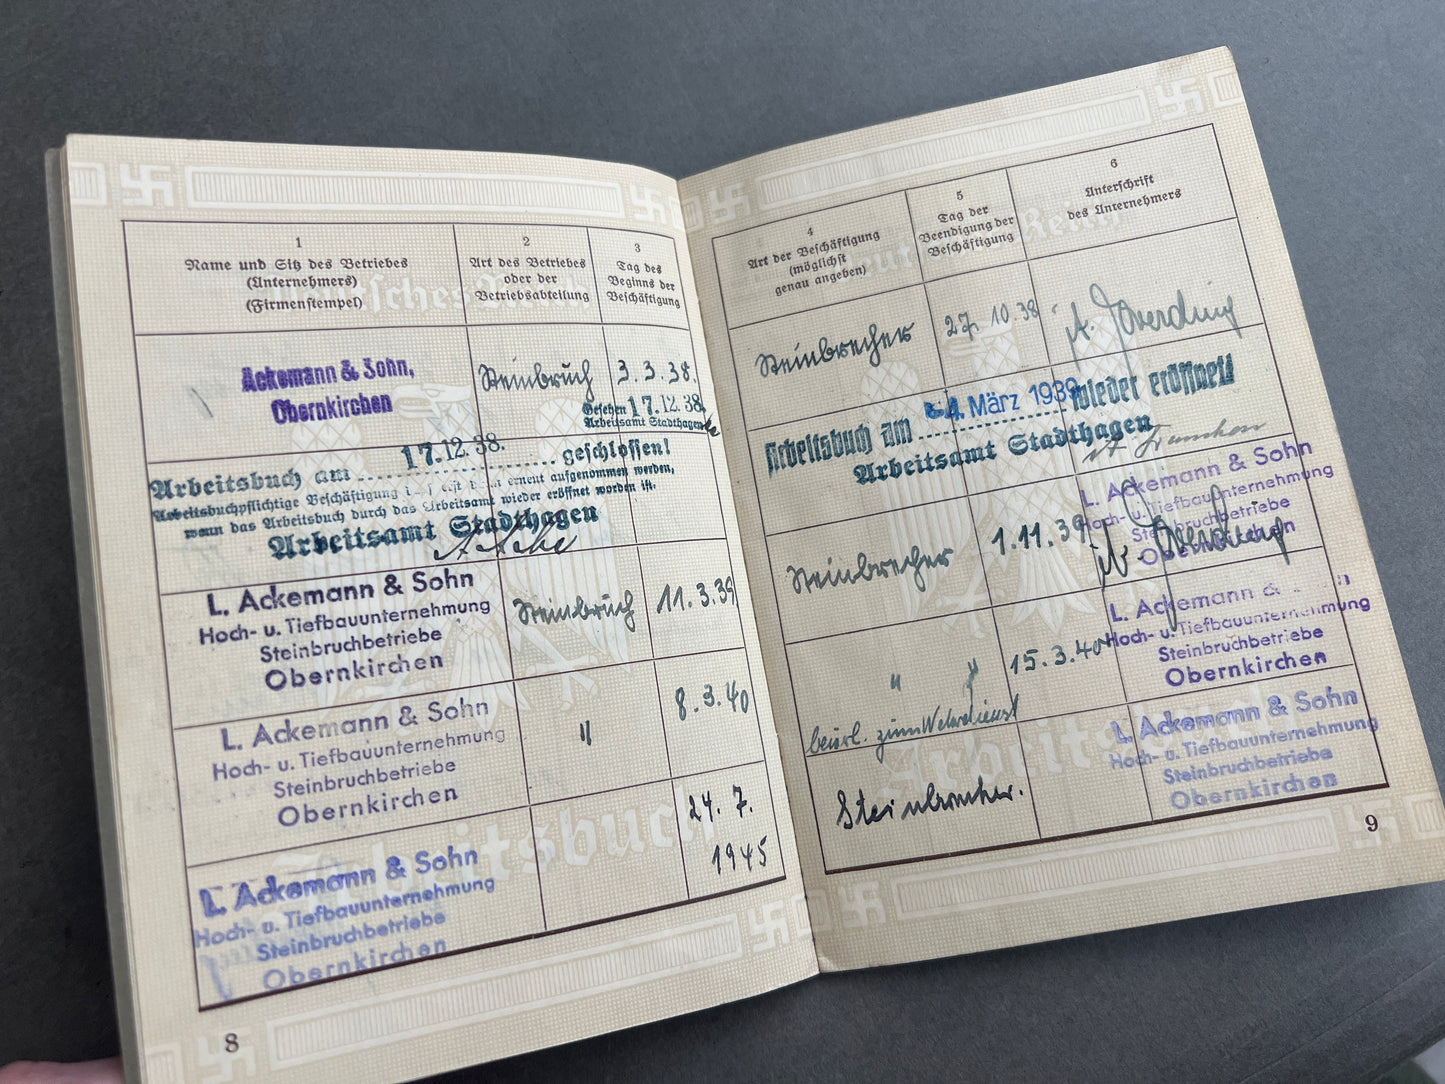 1
Name und Sitz des Betriebes
(Unternehmers)
(Firmenstempel)
2
Art des Betriebes
oder der
Betriebsabteilung
3
Tag des
Beginns der
Beschäftigung
Ackemann & Sohn,
Obernkirchen
Steinbruch
3.3.38.
Gesehen 17.12.38.
Arbeitsamt Stadthagen
Arbeitsbuch am 17.12.38. geschlossen!
Arbeitsbuchpflichtige Beschäftigung erneut aufgenommen werden,
wenn das Arbeitsbuch durch das Arbeitsamt wieder eröffnet worden ist.
Arbeitsamt Stadthagen
L. Ackemann & Sohn
Hoch- u. Tiefbauunternehmung
Steinbruchbetriebe
Obernkirchen
Steinbruch
11.3.39
L. Ackemann & Sohn
Hoch- u. Tiefbauunternehmung
Steinbruchbetriebe
Obernkirchen
"
8.3.40
L. Ackemann & Sohn
Hoch- u. Tiefbauunternehmung
Steinbruchbetriebe
Obernkirchen
24.7.
1945
Arbeitsbuch
8
4
Art der Beschäftigung
(möglichst
genau angeben)
5
Tag der
Beendigung der
Beschäftigung
6
Unterschrift
des Unternehmers
Steinbrecher
27.10.38
Arbeitsbuch am 4. März 1939 wieder eröffnet!
Arbeitsamt Stadthagen
Steinbrecher
1.11.39
L. Ackemann & Sohn
Hoch- u. Tiefbauunternehmung
Steinbruchbetriebe
Obernkirchen
" "
15.3.40
beurl. zum Wehrdienst
L. Ackemann &
Hoch- u. Tiefbauunternehmung
Steinbruchbetriebe
Obernkirchen
Steinbrecher.
L. Ackemann & Sohn
Hoch- u. Tiefbauunternehmung
Steinbruchbetriebe
Obernkirchen
9